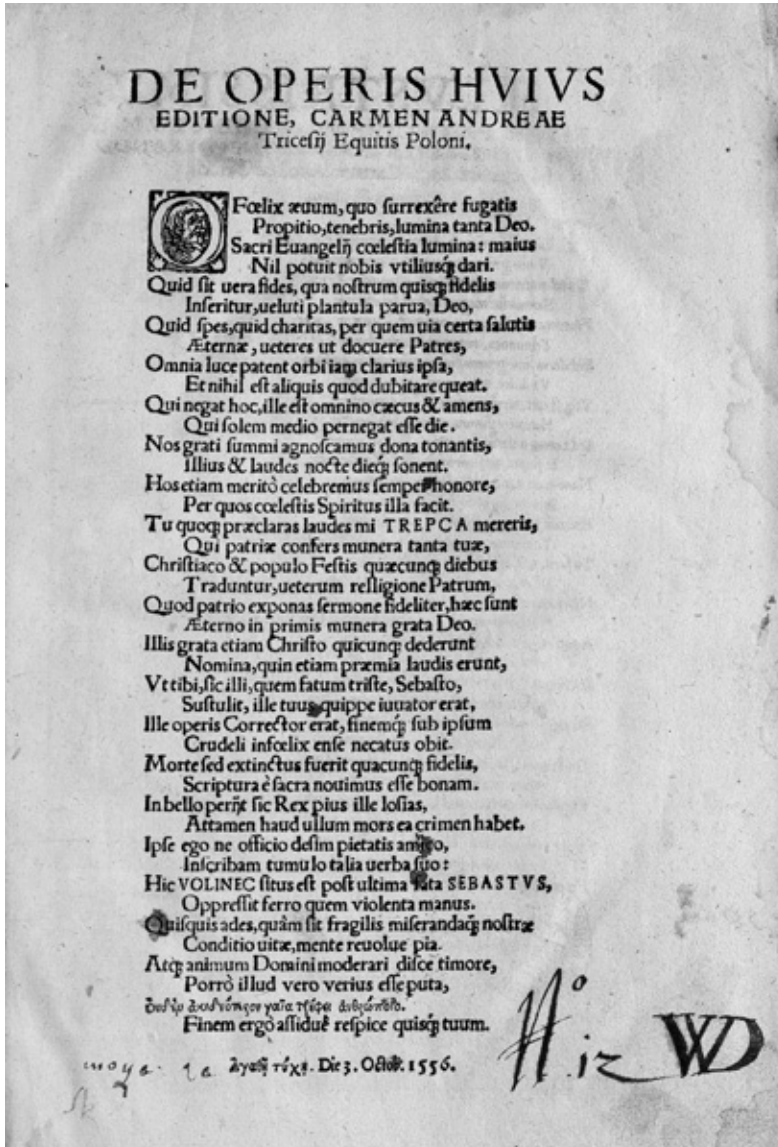 DE OPERIS HVIVS
EDITIONE, CARMEN ANDREAE
Triceſij Equitis Poloni.
O Fœlix æuum, quo ſurrexêre fugatis
Propitio, tenebris, lumina tanta Deo.
Sacri Euangelij cœleſtia lumina: maius
Nil potuit nobis vtiliusq́; dari.
Quid ſit uera fides, qua noſtrum quisq́; fidelis
Inſeritur, ueluti plantula parua, Deo,
Quid ſpes, quid charitas, per quem uia certa ſalutis
Æternæ, ueteres ut docuere Patres,
Omnia luce patent orbi iaq́; clarius ipſa,
Et nihil eſt aliquis quod dubitare queat.
Qui negat hoc, ille eſt omnino cæcus & amens,
Qui ſolem medio pernegat eſſe die.
Nos grati ſummi agnoſcamus dona tonantis,
Illius & laudes nocte dieq́; ſonent.
Hos etiam meritò celebremus ſemper honore,
Per quos cœleſtis Spiritus illa facit.
Tu quoq́; præclaras laudes mi TREPCA mereris,
Qui patriæ confers munera tanta tuæ,
Chriſtiaco & populo Feſtis quæcunq́; diebus
Traduntur, ueterum relligione Patrum,
Quod patrio exponas ſermone fideliter, hæc ſunt
Æterno in primis munera grata Deo.
Illis grata etiam Chriſto quicunq́; dederunt
Nomina, quin etiam præmia laudis erunt,
Vt tibi, ſic illi, quem fatum triſte, Sebaſto,
Suſtulit, ille tuus quippe iuuator erat,
Ille operis Corrector erat, finemq́; ſub ipſum
Crudeli infœlix enſe necatus obit.
Morte ſed extinctus fuerit quacunq́; fidelis,
Scriptura è ſacra nouimus eſſe bonam.
In bello perijt ſic Rex pius ille Ioſias,
Attamen haud ullum mors ea crimen habet.
Ipſe ego ne officio deſim pietatis amico,
Inſcribam tumulo talia uerba ſuo:
Hic VOLINEC ſitus eſt poſt ultima fata SEBASTVS,
Oppreſſit ferro quem violenta manus.
Quiſquis ades, quàm ſit fragilis miſerandaq́; noſtræ
Conditio uitæ, mente reuolue pia.
Atq́; animum Domini moderari diſce timore,
Porrò illud vero verius eſſe puta,
Finem ergò aſſiduè reſpice quisq́; tuum.
ἀγαθῇ τύχῃ. Die 3. Octob. 1556.
WD